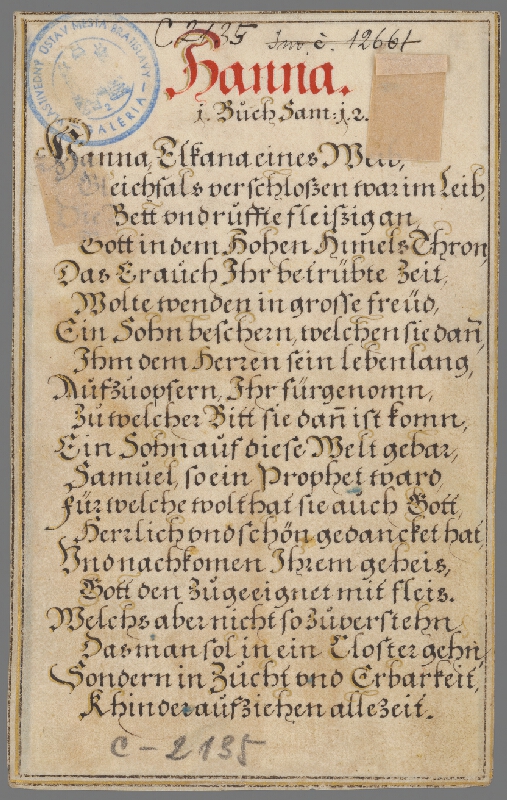 C 2135 Inv. č. 12661
VLASTIVEDNÝ ÚSTAV MESTA BRATISLAVY
GALÉRIA
Hanna.
1. Buch Sam: 1. 2.
Hanna, Elkana eines Weib,
Gleichsals verschloßen war im Leib,
Bett vnd ruffte fleiszig an,
Gott in dem Hohen Himels Thron,
Das Er auch Ihr betrübte Zeit,
Wolte wenden in grosse freüd,
Ein Sohn beschern, welchen sie dañ,
Ihm dem Herren sein leben lang,
Aufzuopfern, Ihr fürgenomn,
Zu welcher Bitt sie dañ ist komn,
Ein Sohn auf diese Welt gebar,
Samuel, so ein Prophet ward,
Für welche wolthat sie auch Gott,
Herzlich vnd schön gedancket hat,
Vnd nachkomen Ihrem geheis,
Gott den zugeeignet mit fleis.
Welchs aber nicht so zuverstehn,
Das man sol in ein Closter gehn,
Sondern in Zucht vnd Erbarkeit,
Khinder aufziehen alle zeit.
C - 2135